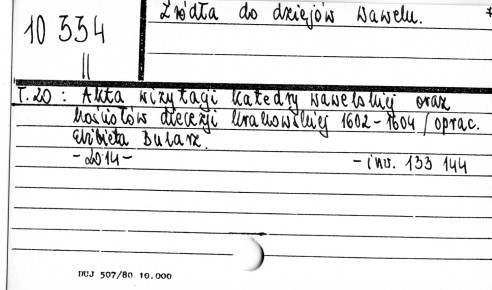 10 334
II
Źródła do dziejów Wawelu.
T. 20 : Akta wizytacji katedry wawelskiej oraz
kościołów diecezji krakowskiej 1602-1604 / oprac.
Elżbieta Bularz.
- 2014 -
- inw. 133 144
DUJ 507/80 10.000